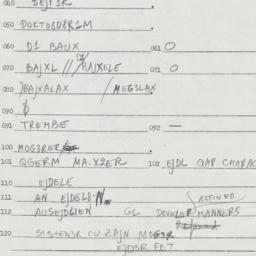 040 DEJF1R
050 DOKTO6U8R1M
060 D1 BAUX 061 O
070 BAJXL /// BAJXELE 071 O
080 )BAJXALAX / MEG3LAX
090
091 TREMBE 092 —
100 MOG3RER
101 QGERM MA.X2ER 102 EJDL QAP CHARAC
110 EJDELE
111 AN EJDEL8 (REFINED
112 AUSEJDLIEN GL DEVELOP MANNERS
120 SIS1EN3R CU ZAJN MOG3R
EJD3R FE7